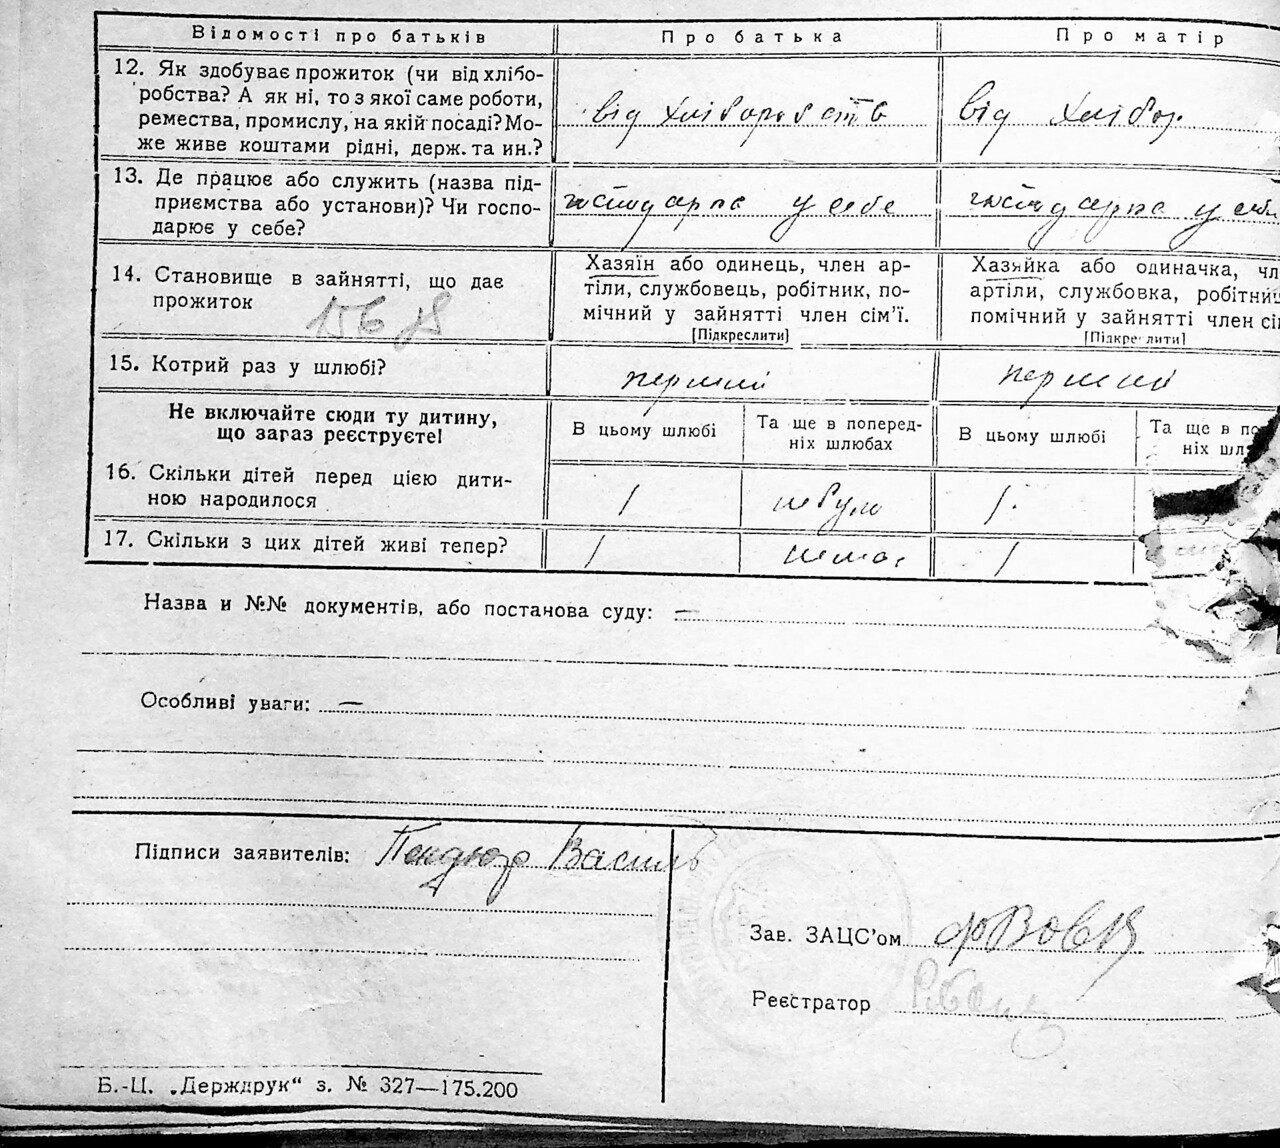 Відомості про батьків Про батька Про матір
12. Як здобуває прожиток (чи від хлібо-
робства? А як ні, то з якої саме роботи,
ремества, промислу, на якій посаді? Мо-
же живе коштами рідні, держ. та ин.?
від хліборобств від хлібор.
13. Де працює або служить (назва під-
приємства або установи)? Чи госпо-
дарює у себе?
у себе у себе
14. Становище в зайнятті, що дає
прожиток
Хазяїн або одинець, член ар-
тіли, службовець, робітник, по-
мічний у зайнятті член сім'ї.
[Підкреслити]
Хазяйка або одиначка, чл
артіли, службовка, робітниц
помічний у зайнятті член сі
[Підкреслити]
15. Котрий раз у шлюбі? перший перший
Не включайте сюди ту дитину,
що зараз реєструєте!
В цьому шлюбі
Та ще в поперед-
ніх шлюбах
В цьому шлюбі
Та ще в по
ніх шл
16. Скільки дітей перед цією дити-
ною народилося
1 небуло 1.
17. Скільки з цих дітей живі тепер? 1 немає 1
Назва и №№ документів, або постанова суду: —
Особливі уваги: —
Підписи заявителів: Василь
Зав. ЗАЦС'ом Вовк
Реєстратор
Б.-Ц. „Держдрук" з. № 327—175.200